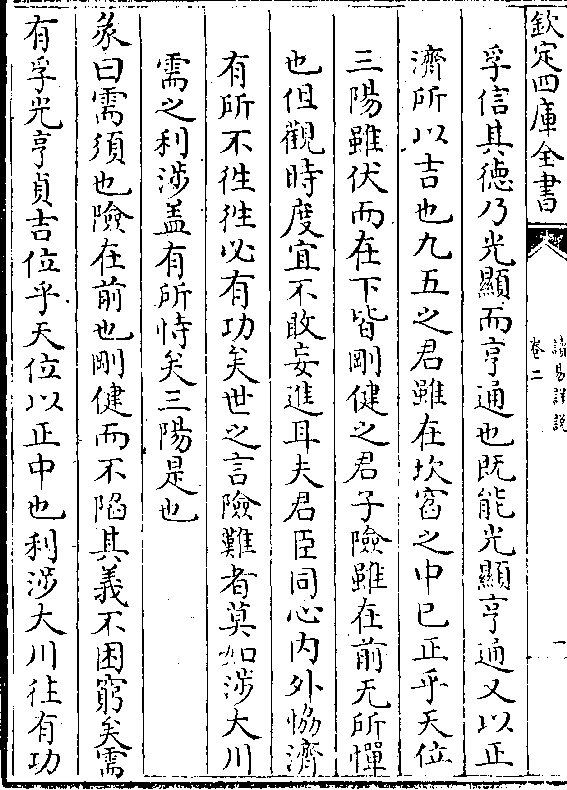 欽定四庫全書
讀易詳說
卷二
一
孚信其德乃光顯而亨通也既能光顯亨通又以正
濟所以吉也九五之君雖在坎窞之中已正乎天位
三陽雖伏而在下皆剛健之君子險雖在前无所憚
也但觀時度宜不敢妄進耳夫君臣同心内外恊濟
有所不徃徃必有功矣世之言險難者莫如涉大川
需之利涉盖有所恃矣三陽是也
彖曰需須也險在前也剛健而不陷其義不困窮矣需
有孚光亨貞吉位乎天位以正中也利涉大川徃有功